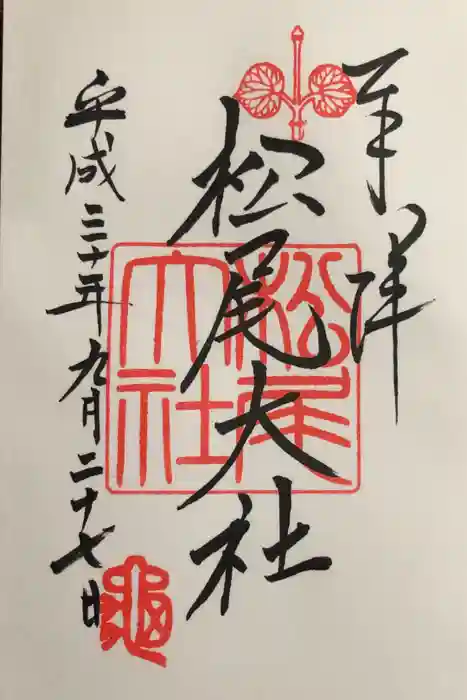 奉拝
松尾大社
松尾大社
平成三十年九月二十七日
亀